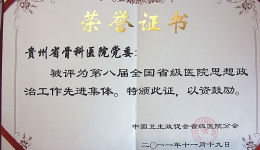 荣誉证书
贵州省骨科医院党委:
被评为第八届全国省级医院思想政
治工作先进集体。特颁此证，以资鼓励。
中国卫生政促会省级医院分会
二〇一一年十一月十九日